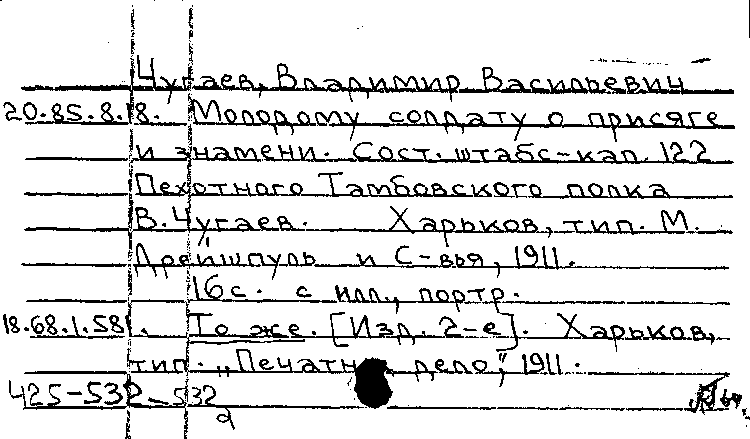 Чугаев, Владимир Васильевич
20.85.8.18. Молодому солдату о присяге
и знамени. Сост. штабс-кап. 122
Пехотного Тамбовского полка
В. Чугаев. Харьков, тип. М.
Дрейшпуль и С-вья, 1911.
16 с. с илл., портр.
18.68.1.581. То же. [Изд. 2-е]. Харьков,
тип. „Печатн дело", 1911.
425-532-532
а